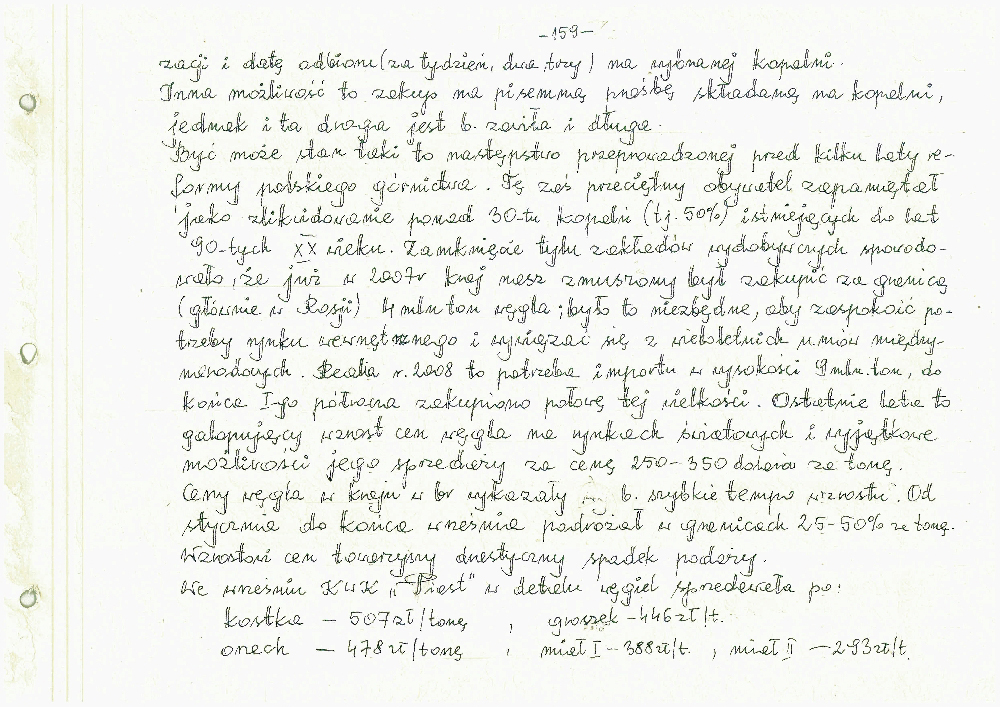 -159-
zacji i datę odbioru (za tydzień, dwa, trzy) na wybranej kopalni.
Inna możliwość to zakup na pisemną prośbę składaną na kopalni,
jednak i ta droga jest b. zawiła i długa.
Być może stan taki to następstwo przeprowadzonej przed kilku laty re-
formy polskiego górnictwa. Tę zaś przeciętny obywatel zapamiętał
jako zlikwidowanie ponad 30-tu kopalni (tj. 50%) istniejących do lat
90-tych XX wieku. Zamknięcie tylu zakładów wydobywczych spowodo-
wało, że już w 2007r kraj nasz zmuszony był zakupić za granicą
(głównie w Rosji) 4 mln ton węgla; było to niezbędne, aby zaspokoić po-
trzeby rynku wewnętrznego i wywiązać się z wieloletnich umów między-
narodowych. Realia r. 2008 to potrzeba importu w wysokości 9 mln. ton, do
końca I-go półrocza zakupiono połowę tej wielkości. Ostatnie lata to
galopujący wzrost cen węgla na rynkach światowych i wyjątkowe
możliwości jego sprzedaży za cenę 250-350 dolarów za tonę.
Ceny węgla w kraju w br wykazały b. szybkie tempo wzrostu. Od
stycznia do końca września podrożał w granicach 25-50% za tonę.
Wzrostowi cen towarzyszy drastyczny spadek podaży.
We wrześniu KWK „Piast" w detalu węgiel sprzedawała po:
kostka – 507 zł/tonę , groszek – 446 zł/t.
orzech – 478 zł/tonę , miał I – 388 zł/t. , miał II – 293 zł/t.